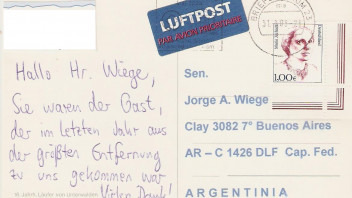 LUFTPOST
PAR AVION PRIORITAIRE
BRIEF
1,00€
Hallo Hr. Wiege,
Sie waren der Gast,
der im letzten Jahr aus
der größten Entfernung
zu uns gekommen war
Vielen Dank!
Sen.
Jorge A. Wiege
Clay 3082 7° Buenos Aires
AR – C 1426 DLF Cap. Fed.
ARGENTINIA